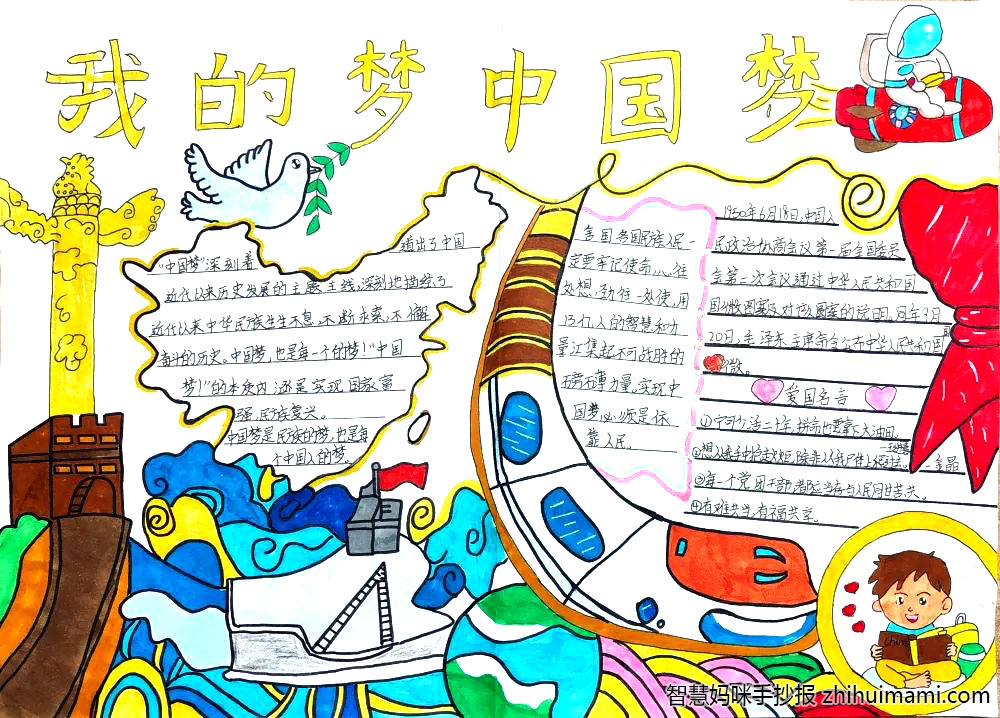 我的梦中国梦
道出了中国
“中国梦”深刻着
近代以来历史发展的主题主线,深刻地描绘了
近代以来中华民族生生不息,不断求索,不懈
奋斗的历史。中国梦,也是每一个的梦!“中国
梦!”的本质内涵是实现国家富
强,民族复兴。
中国梦是民族的梦,也是每
个中国人的梦。
全国各国民族人民一
定要牢记使命,心往
处想,劲往一处使,用
13亿人的智慧和力
量汇集起不可战胜的
磅礴力量。实现中
国梦必须是依
靠人民。
1950年6月18日,中国人
民政治协商会议第一届全国委员
会第二次会议通过中华人民共和国
国徽图案及对该图案的说明,同年9月
20日,毛泽东主席命令公布中华人民共和国
国徽。
爱国名言
①宁可少活二十年,拼命也要拿下大油田。
一王进喜
③每一个党团干部,都应当与人民同甘苦共。
④有难共当,有福共享。
China
智慧妈咪手抄报 zhihuimami.com